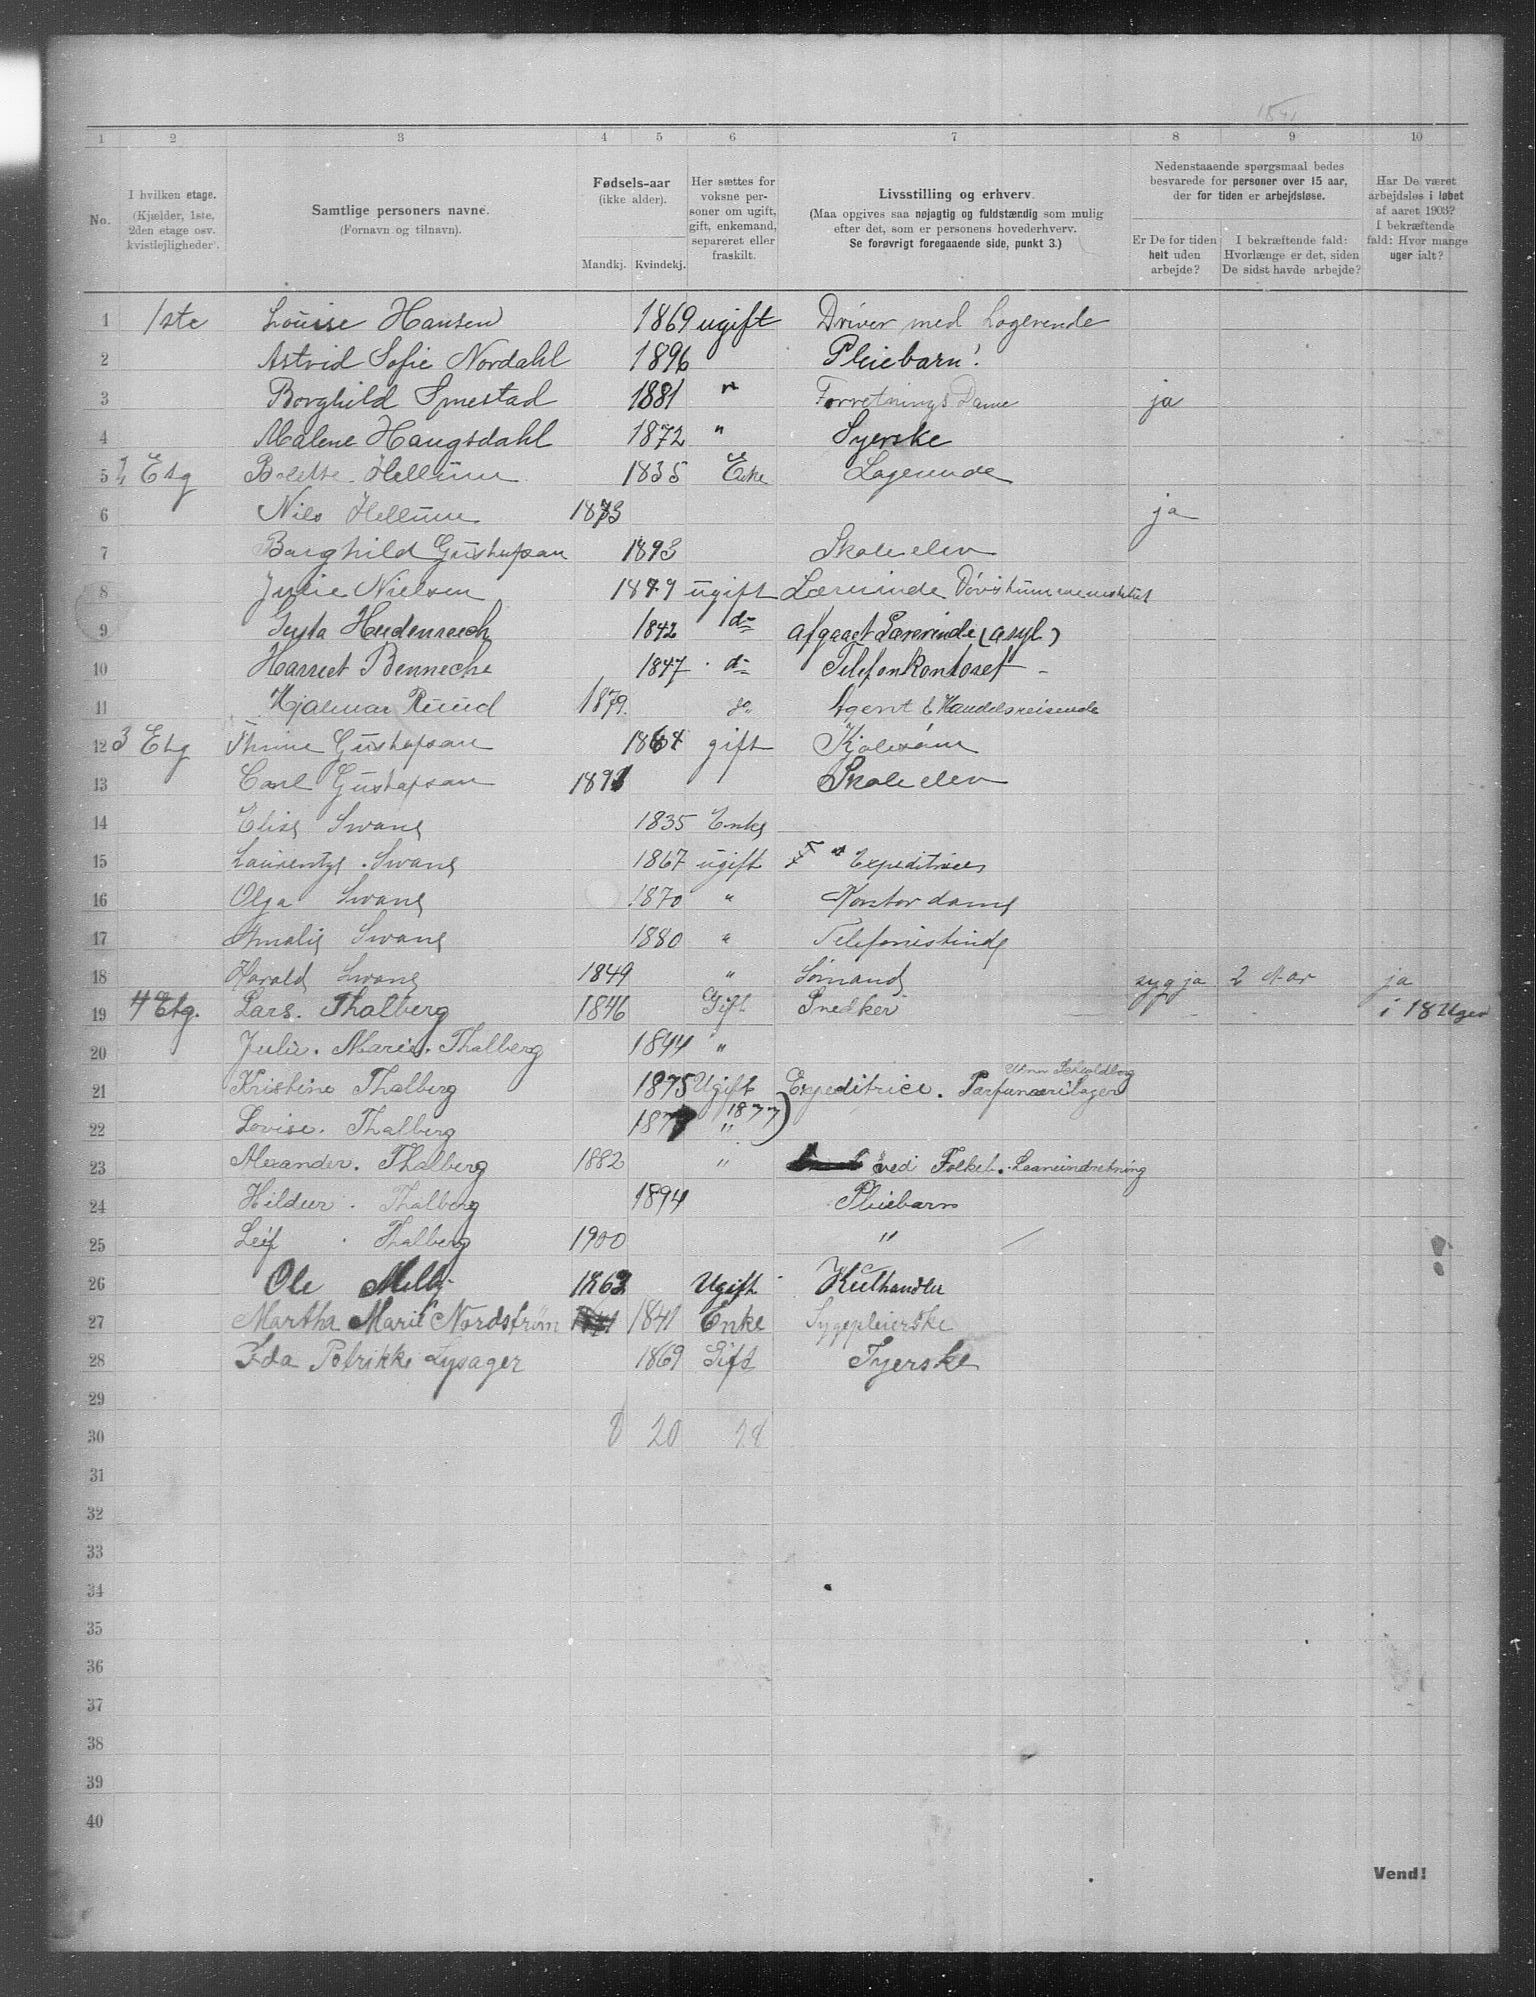 1841
1 2 3 4 5 6 7 8 9 10
No.
I hvilken etage.
(Kjælder, 1ste,
2den etage osv.
kvistlejligheder.
Samtlige personers navne.
(Fornavn og tilnavn).
Fødsels-aar
(ikke alder).
Mandkj. Kvindekj.
Her sættes for
voksne per-
soner om ugift,
gift, enkemand,
separeret eller
fraskilt.
Livsstilling og erhverv.
(Maa opgives saa nøjagtig og fuldstændig som mulig
efter det, som er personens hovederhverv.
Se forøvrigt foregaaende side, punkt 3.)
Nedenstaaende spørgsmaal bedes
besvarede for personer over 15 aar,
der for tiden er arbejdsløse.
Er De for tiden
helt uden
arbejde?
I bekræftende fald:
Hvorlænge er det, siden
De sidst havde arbejde?
Har De været
arbejdsløs i løbet
af aaret 1903?
I bekræftende
fald: Hvor mange
uger ialt?
1 1ste Louise Hansen 1869 ugift Driver med Logerende
2 Astrid Sofie Nordahl 1896 Pleiebarn!
3 Borghild Smestad 1881 " Forretnings Dame ja
4 Malene Haugsdahl 1872 " Syerske
5 Etg Bolette Hellum 1835 Enke Logerende
6 Nils Hellum 1873 ja
7 Borghild Gustafsan 1893 Skoleelev
8 Julie Nielsen 1877 ugift Lærerinde Døvstummeinstitut
9 Gusta Heidenreich 1842 do Afgaaet Lærerinde (asyl)
10 Harriet Benneche 1847 do Telefonkontoret
11 Hjalmar Ruud 1879 do Agent & Handelsreisende
12 3 Etg Thrine Gustafsan 1864 gift Kjolesøm
13 Carl Gustafsan 1891 Skoleelev
14 Elise Svane 1835 Enke
15 Laurentze Svane 1867 ugift Expeditrice
16 Olga Svane 1870 " Kontordame
17 Amalie Svane 1880 " Telefonistinde
18 Harald Svane 1849 " Sømand syg ja 2 Aar ja
19 4 Etg. Lars. Thalberg 1846 Gift Snedker i 18 Uger
20 Julie. Marie. Thalberg 1844 "
21 Kristine Thalberg 1875 Ugift Expeditrice. Parfumerilager
22 Lovise. Thalberg 1877 " 1877)
23 Alexander. Thalberg 1882 " ved Folkets. Laaneindretning
24 Hildur. Thalberg 1894 Pleiebarn
25 Leif. Thalberg 1900 "
26 Ole Melby 1863 Ugift Kulhandler
27 Martha Marie Nordstrøm 1841 1841 Enke Sygepleierske
28 Ida Petrikke Lysager 1869 Gift Syerske
29
30 8 20 28
31
32
33
34
35
36
37
38
39
40
Vend!